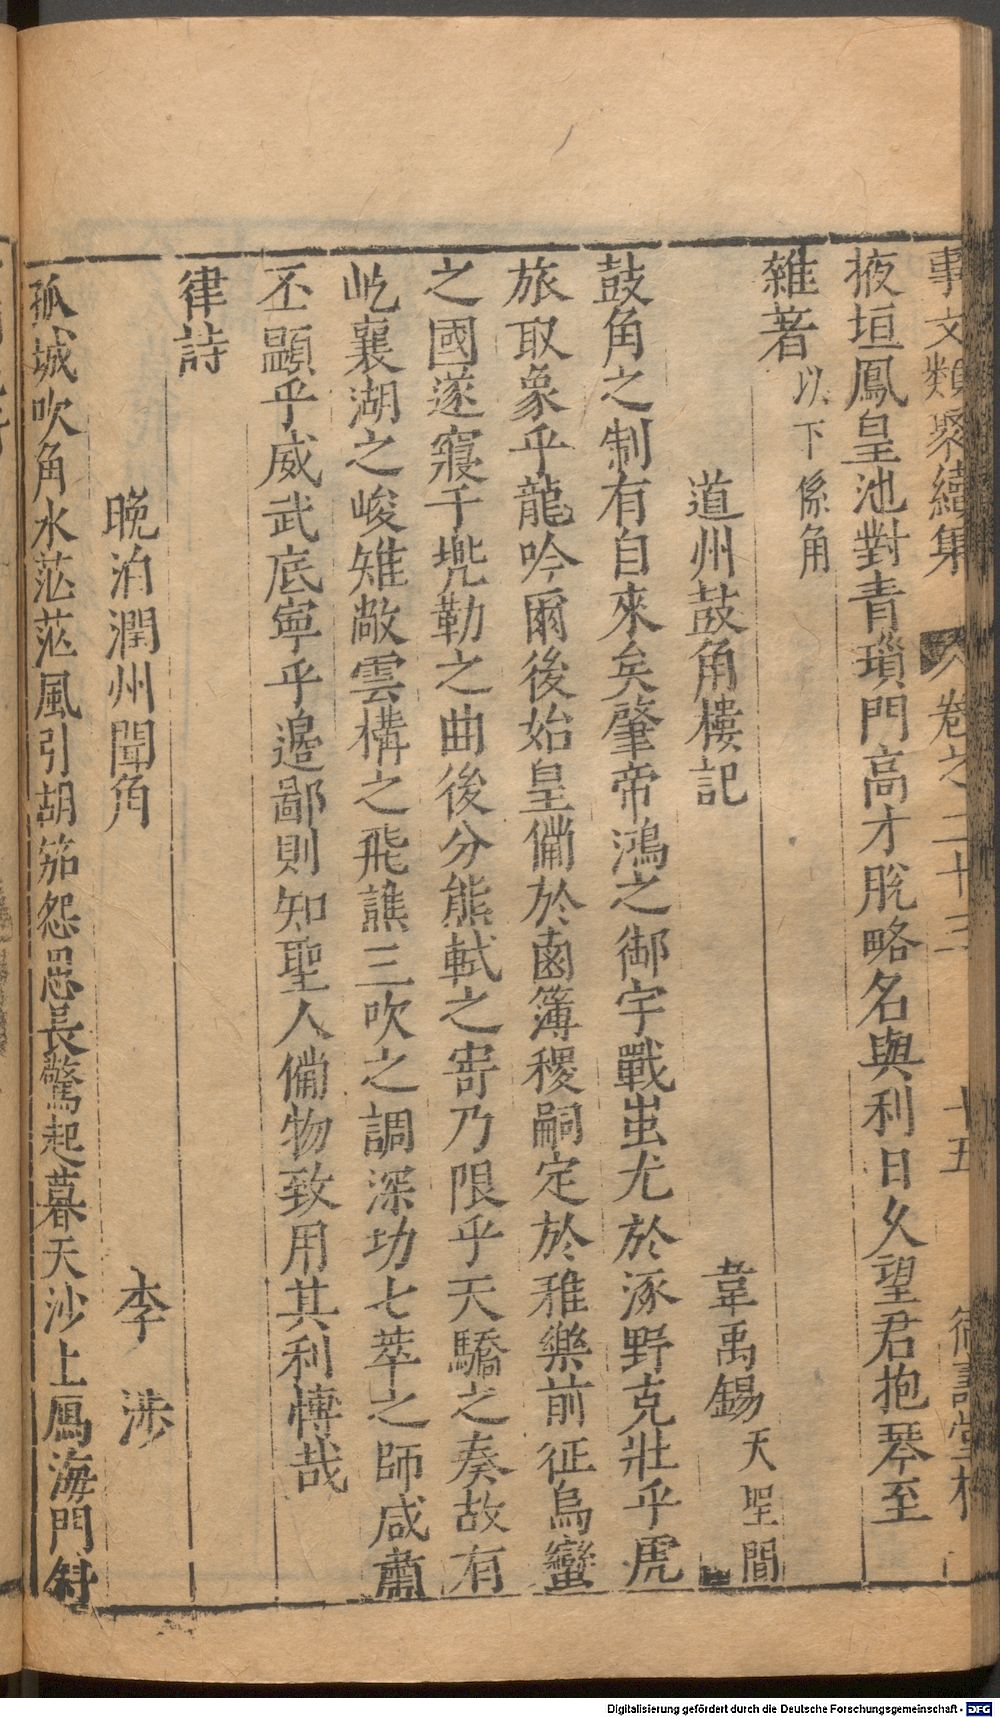 事文類聚續集 卷之二十三 十五 德壽堂梓
掖垣鳳皇池對青瑣門高才脫略名與利日久望君抱琴至
雜著 以下係角
道州鼓角樓記 韋禹錫 天聖間
鼓角之制有自來矣肇帝鴻之御宇戰蚩尤於涿野克壯乎虎
旅取象乎龍吟爾後始皇備於鹵簿稷嗣定於雅樂前征烏蠻
之國遂寢于兠勒之曲後分熊軾之寄乃限乎天驕之奏故有
屹襄湖之峻雉敞雲構之飛譙三吹之調深功七萃之師咸肅
丕顯乎威武底寧乎邉鄙則知聖人備物致用其利慱哉
律詩
晚泊潤州聞角 李涉
孤城吹角水茫茫風引胡笳怨思長驚起暮天沙上鴈海門斜
Digitalisierung gefördert durch die Deutsche Forschungsgemeinschaft - DFG